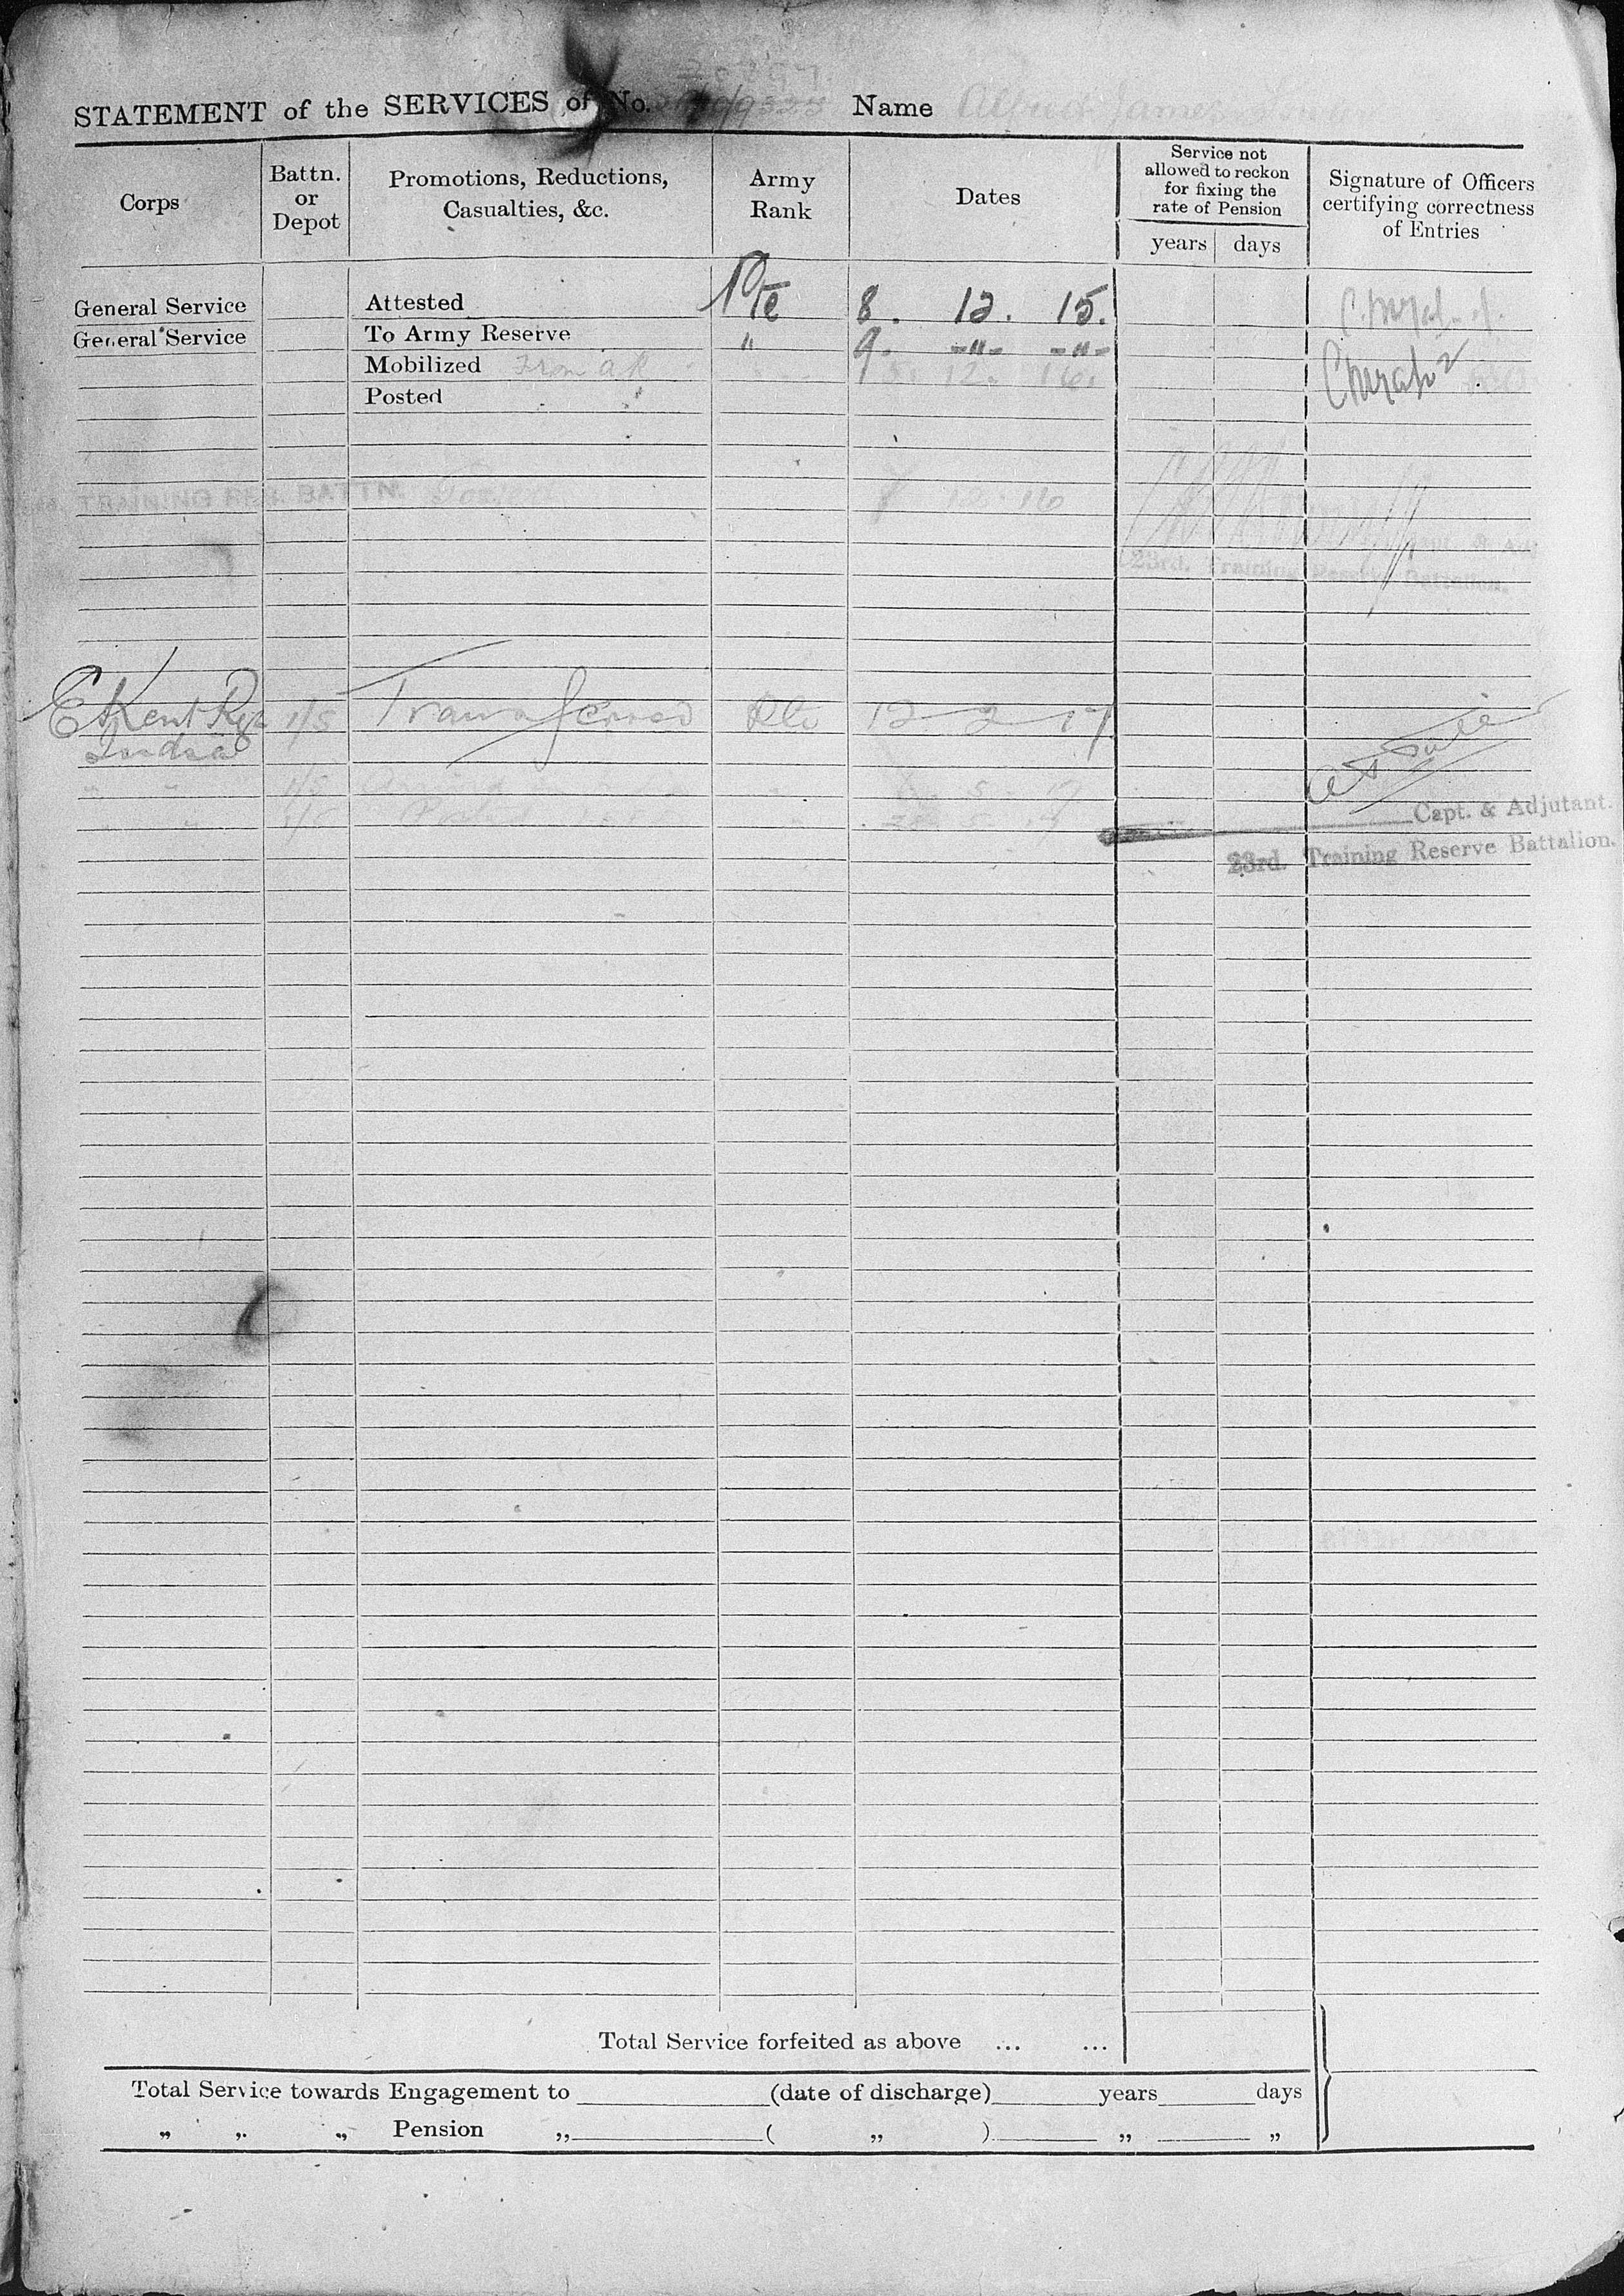 STATEMENT of the SERVICES of No. Name Alfred James
Corps
Battn.
or
Depot
Promotions, Reductions,
Casualties, &c.
Army
Rank
Dates
Service not
allowed to reckon
for fixing the
rate of Pension
years days
Signature of Officers
certifying correctness
of Entries
General Service Attested Pte 8. 12. 15.
General Service To Army Reserve " 9. -"- -"-
Mobilized From A R 12. 16.
Posted
TRAINING RES. BATTN. Posted 12 16
23rd. Training Reserve Battalion.
E Kent Rgt 1/5 Transferred Pte 12 2 17
" " 1/5 5 17
" " 1/5 Posted 5 17
Capt. & Adjutant.
23rd. Training Reserve Battalion.
Total Service forfeited as above ... ...
Total Service towards Engagement to (date of discharge) years days
„ „ „ Pension „ ( „ ) „ „